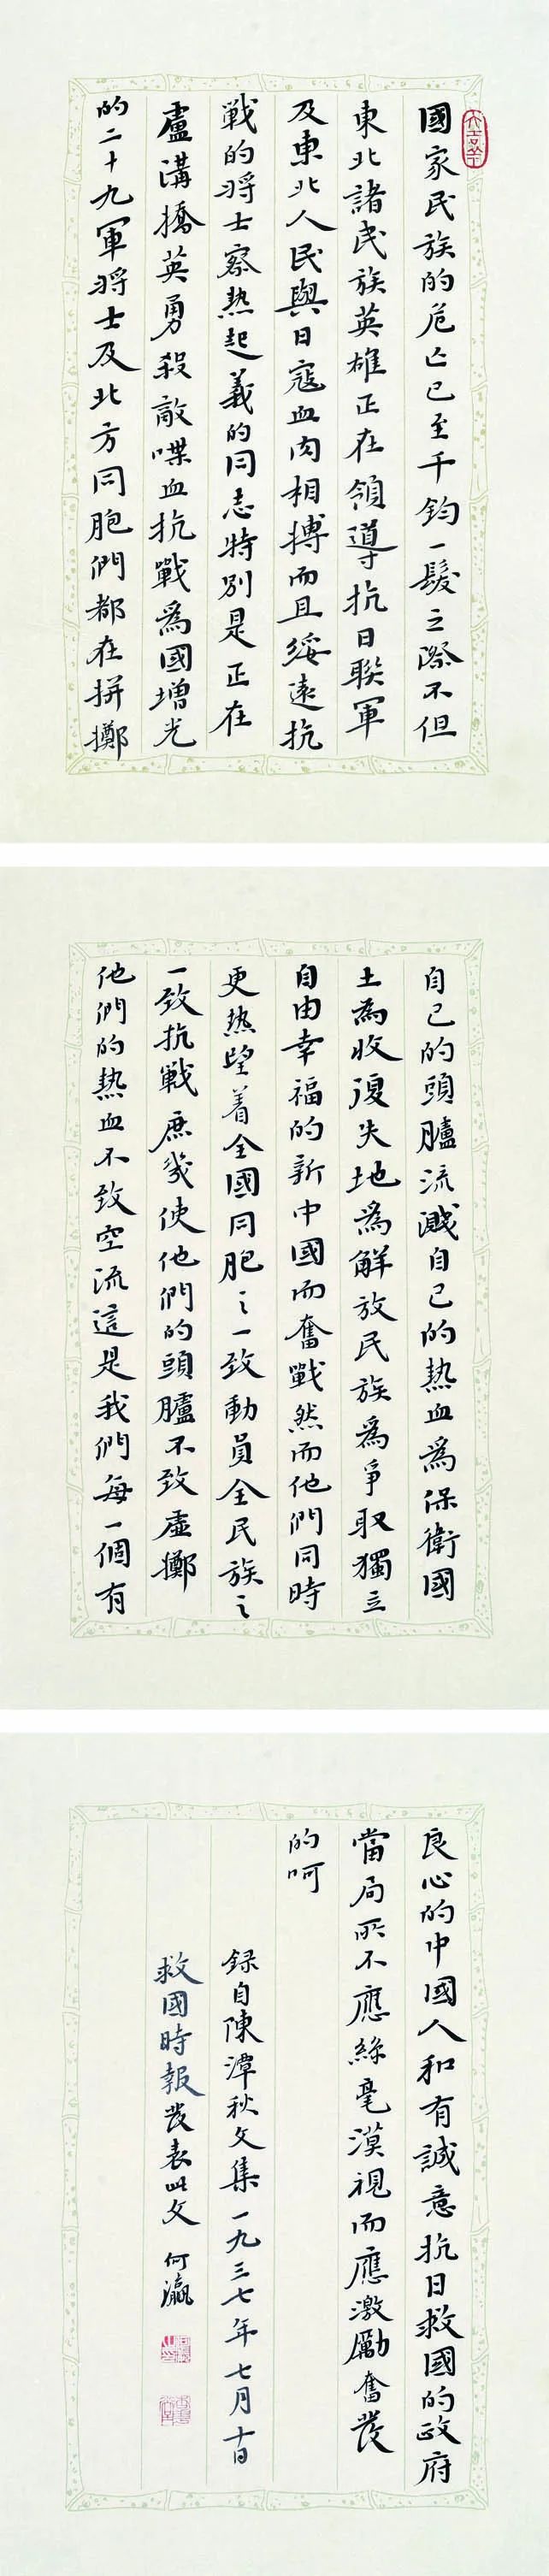 國家民族的危亡已至千鈞一髮之際不但
東北諸民族英雄正在領導抗日聯軍
及東北人民與日寇血肉相搏而且綏遠抗
戰的將士察熱起義的同志特別是正在
盧溝橋英勇殺敵喋血抗戰爲國增光
的二十九軍將士及北方同胞們都在拼擲
自己的頭臚流濺自己的熱血爲保衛國
土為收復失地爲解放民族爲爭取獨立
自由幸福的新中國而奮戰然而他們同時
更熱望着全國同胞之一致動員全民族之
一致抗戰庶幾使他們的頭臚不致虛擲
他們的熱血不致空流這是我們每一個有
良心的中國人和有誠意抗日救國的政府
當局所不應絲毫漠視而應激勵奮發
的呵
録自陳潭秋文集一九三七年七月十日
救國時報發表此文 何瀛